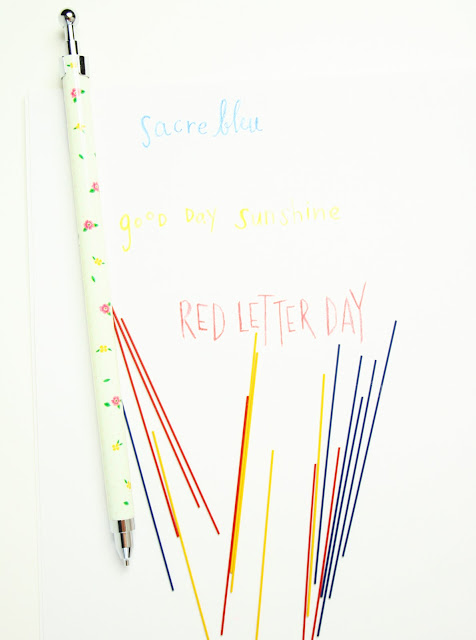 sacre bleu
good Day sunshine
RED LETTER DAY